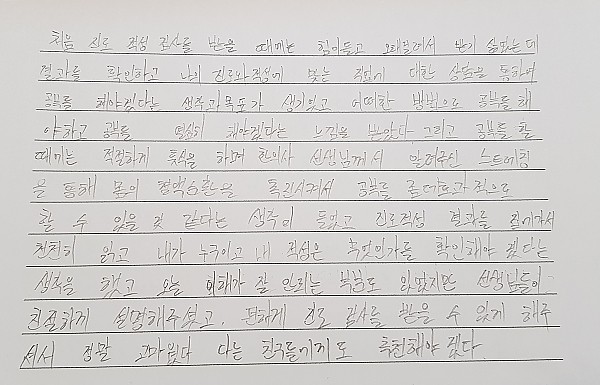 처음 진로 적성 검사를 받을 때에는 힘이들고 오래걸려서 받기 싫었는데
결과를 확인하고 나의 진로와적성에 맞는 직업에 대한 상담을 통하여
공부를 해야겠다는 생각과목표가 생기있고 어떠한 방법으로 공부를 해
야하고 공부를 열심히 해야겠다는 느낌을 받았다 그리고 공부를 할
때에는 적절하게 휴식을 하며 한의사 선생님께서 알려주신 스트레칭
을 통해 몸의 혈액순환을 촉진시켜서 공부를 효과적으로
할 수 있을 것 같다는 생각이 들었고 진로적성 결과를 집에가서
천천히 읽고 내가 누구이고 내 적성은 무엇인가를 확인해야 겠다는
생각을 했고 오늘 이해가 잘 안되는 부분도 있었지만 선생님들이
친절하게 설명해주셨고, 편하게 진로 검사를 받을 수 있게 해주
셔서 정말 고마웠다 다른 친구들에게도 추천해야겠다.